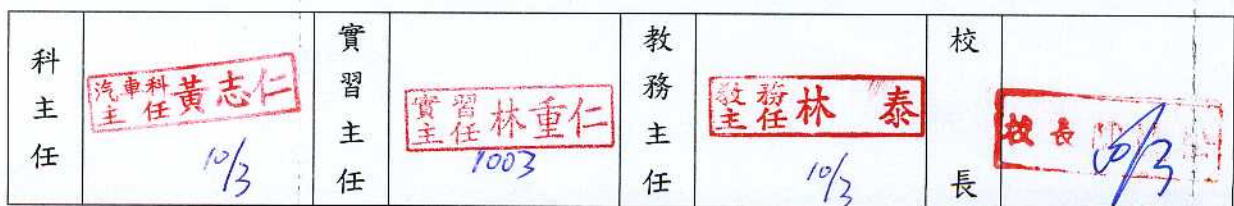 科主任
汽車科主任 黃志仁
10/3
實習主任
實習主任 林重仁
1003
教務主任
教務主任 林 泰
10/3
校長
校長
10/3